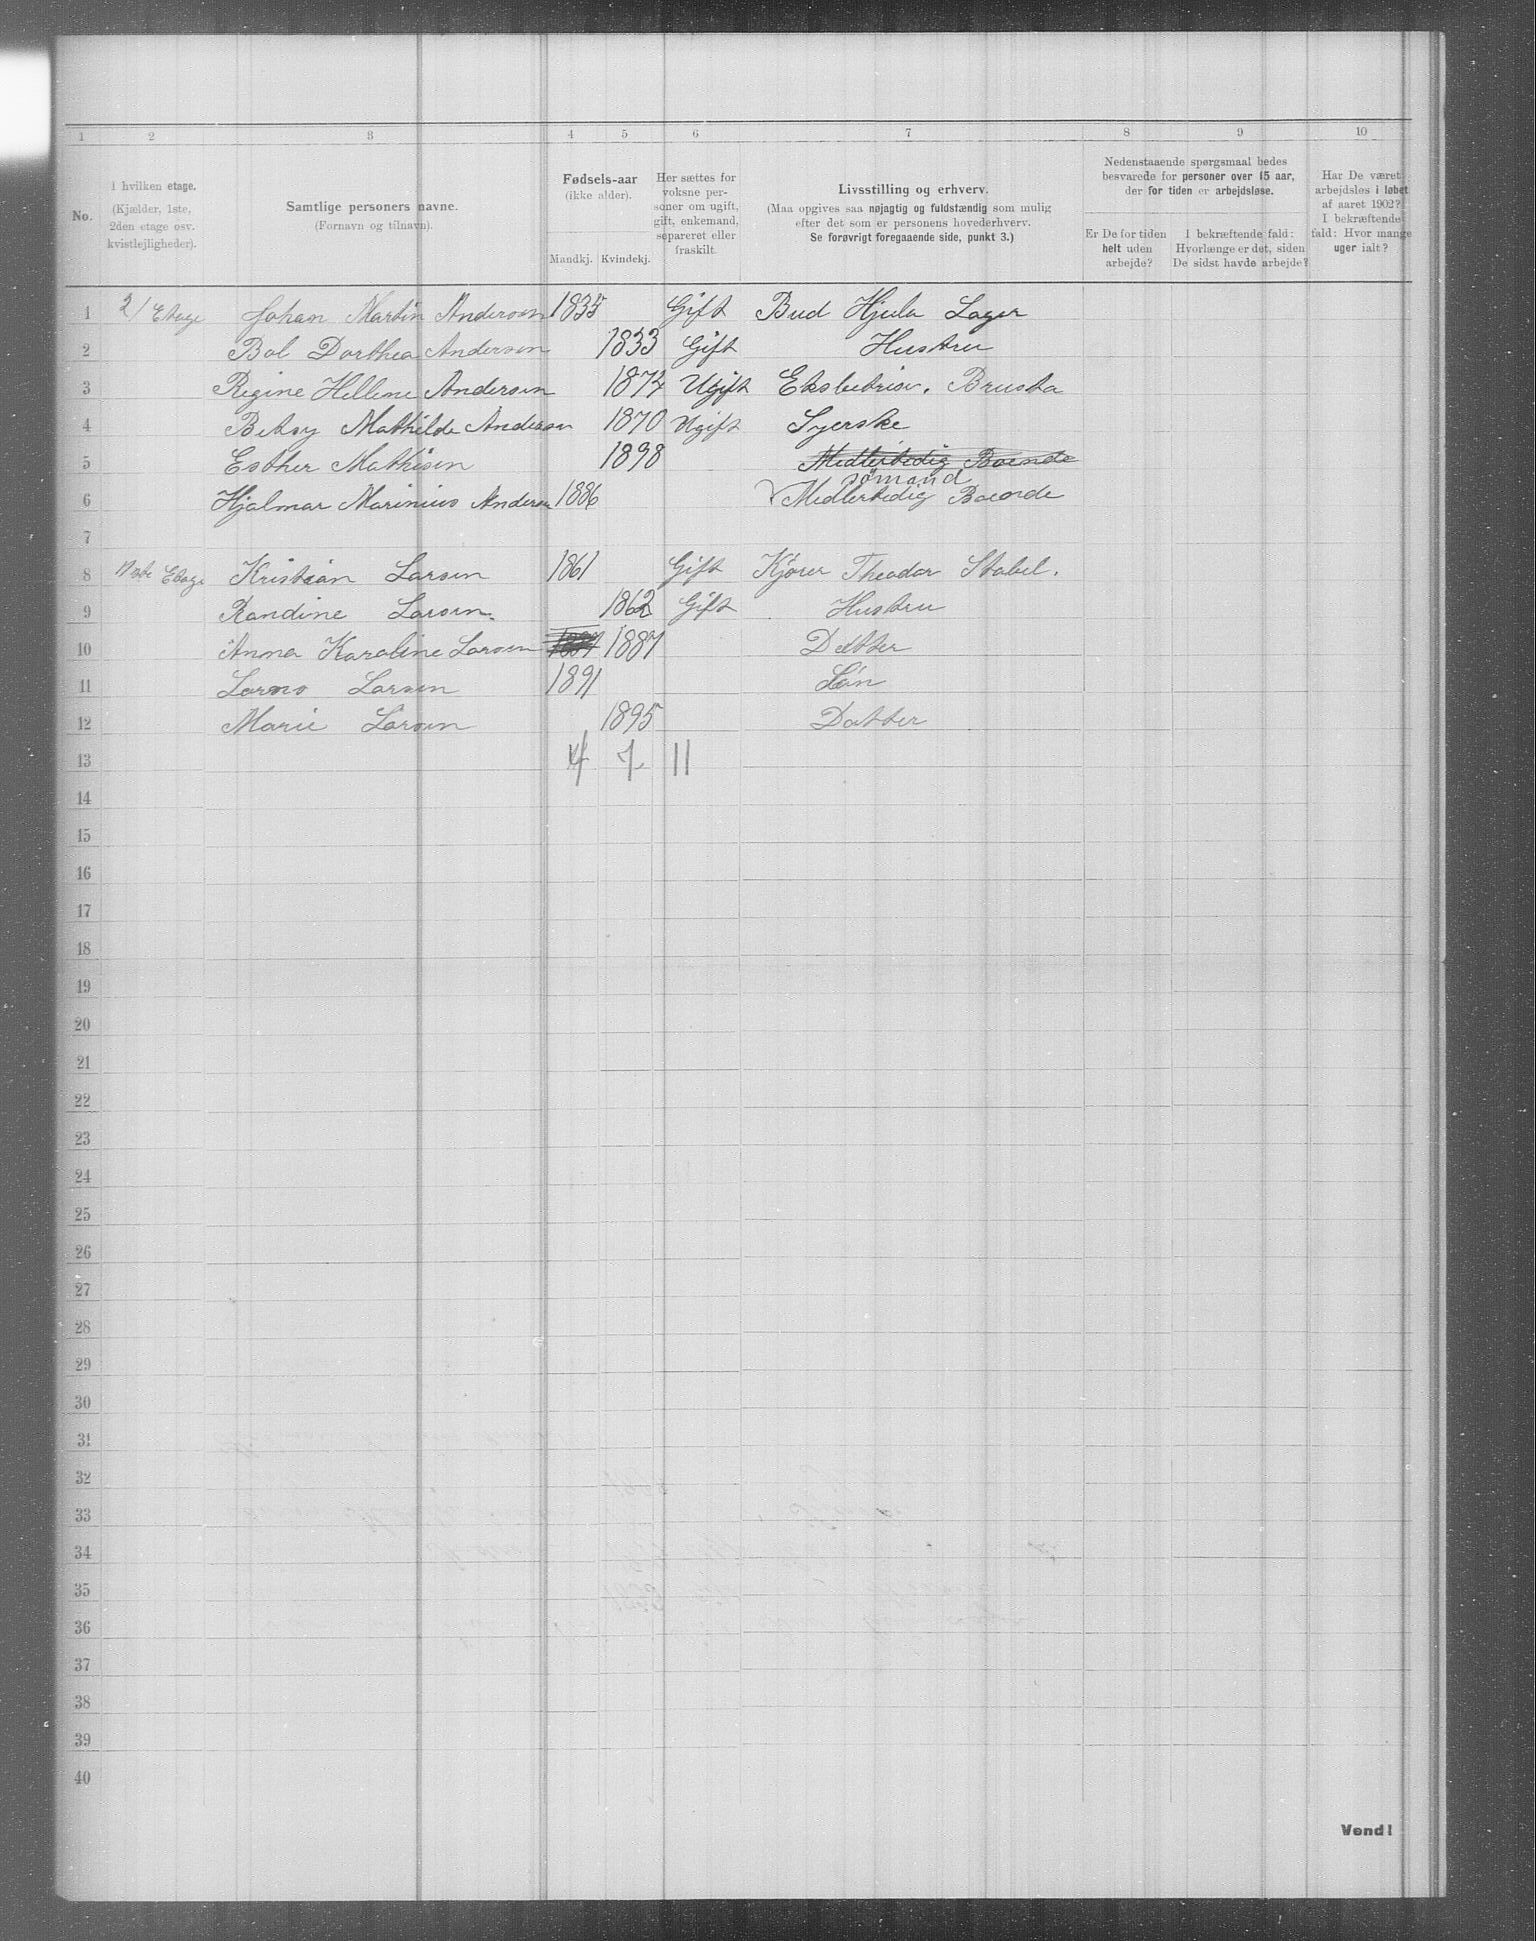 1 2 3 4 5 6 7 8 9 10
No.
I hvilken etage.
(Kjælder, 1ste,
2den etage osv.
kvistlejligheder).
Samtlige personers navne.
(Fornavn og tilnavn).
Fødsels-aar
(ikke alder).
Mandkj. Kvindekj.
Her sættes for
voksne per-
soner om ugift,
gift, enkemand,
separeret eller
fraskilt.
Livsstilling og erhverv.
(Maa opgives saa nøjagtig og fuldstændig som mulig
efter det som er personens hovederhverv.
Se forøvrigt foregaaende side, punkt 3.)
Nedenstaaende spørgsmaal bedes
besvarede for personer over 15 aar,
der for tiden er arbejdsløse.
Er De for tiden
helt uden
arbejde?
I bekræftende fald:
Hvorlænge er det, siden
De sidst havde arbejde?
Har De været
arbejdsløs i løbet
af aaret 1902?
I bekræftende
fald: Hvor mange
uger ialt?
1 2/ Etage Johan Martin Andersen 1835 Gift Bud Hjula Lager
2 Bol Dorthea Andersen 1833 Gift Hustru
3 Regine Hellene Andersen 1874 Ugift Brusta
4 Betsy Mathilde Andersen 1870 Ugift Syerske
5 Esther Mathisen 1898 Medlertedig Boende
sømand
6 Hjalmar Marinius Andersen 1886 Medlertedig Boende
7
8 1ste Etage Kristian Larsen 1861 Gift Kjører Theodor Stabel.
9 Randine Larsen. 1862 Gift Hustru
10 Anna Karoline Larsen 1887 1887 Datter
11 Larsen 1891 Søn
12 Marie Larsen 1895 Datter
13 4 7 11
14
15
16
17
18
19
20
21
22
23
24
25
26
27
28
29
30
31
32
33
34
35
36
37
38
39
40
Vend!